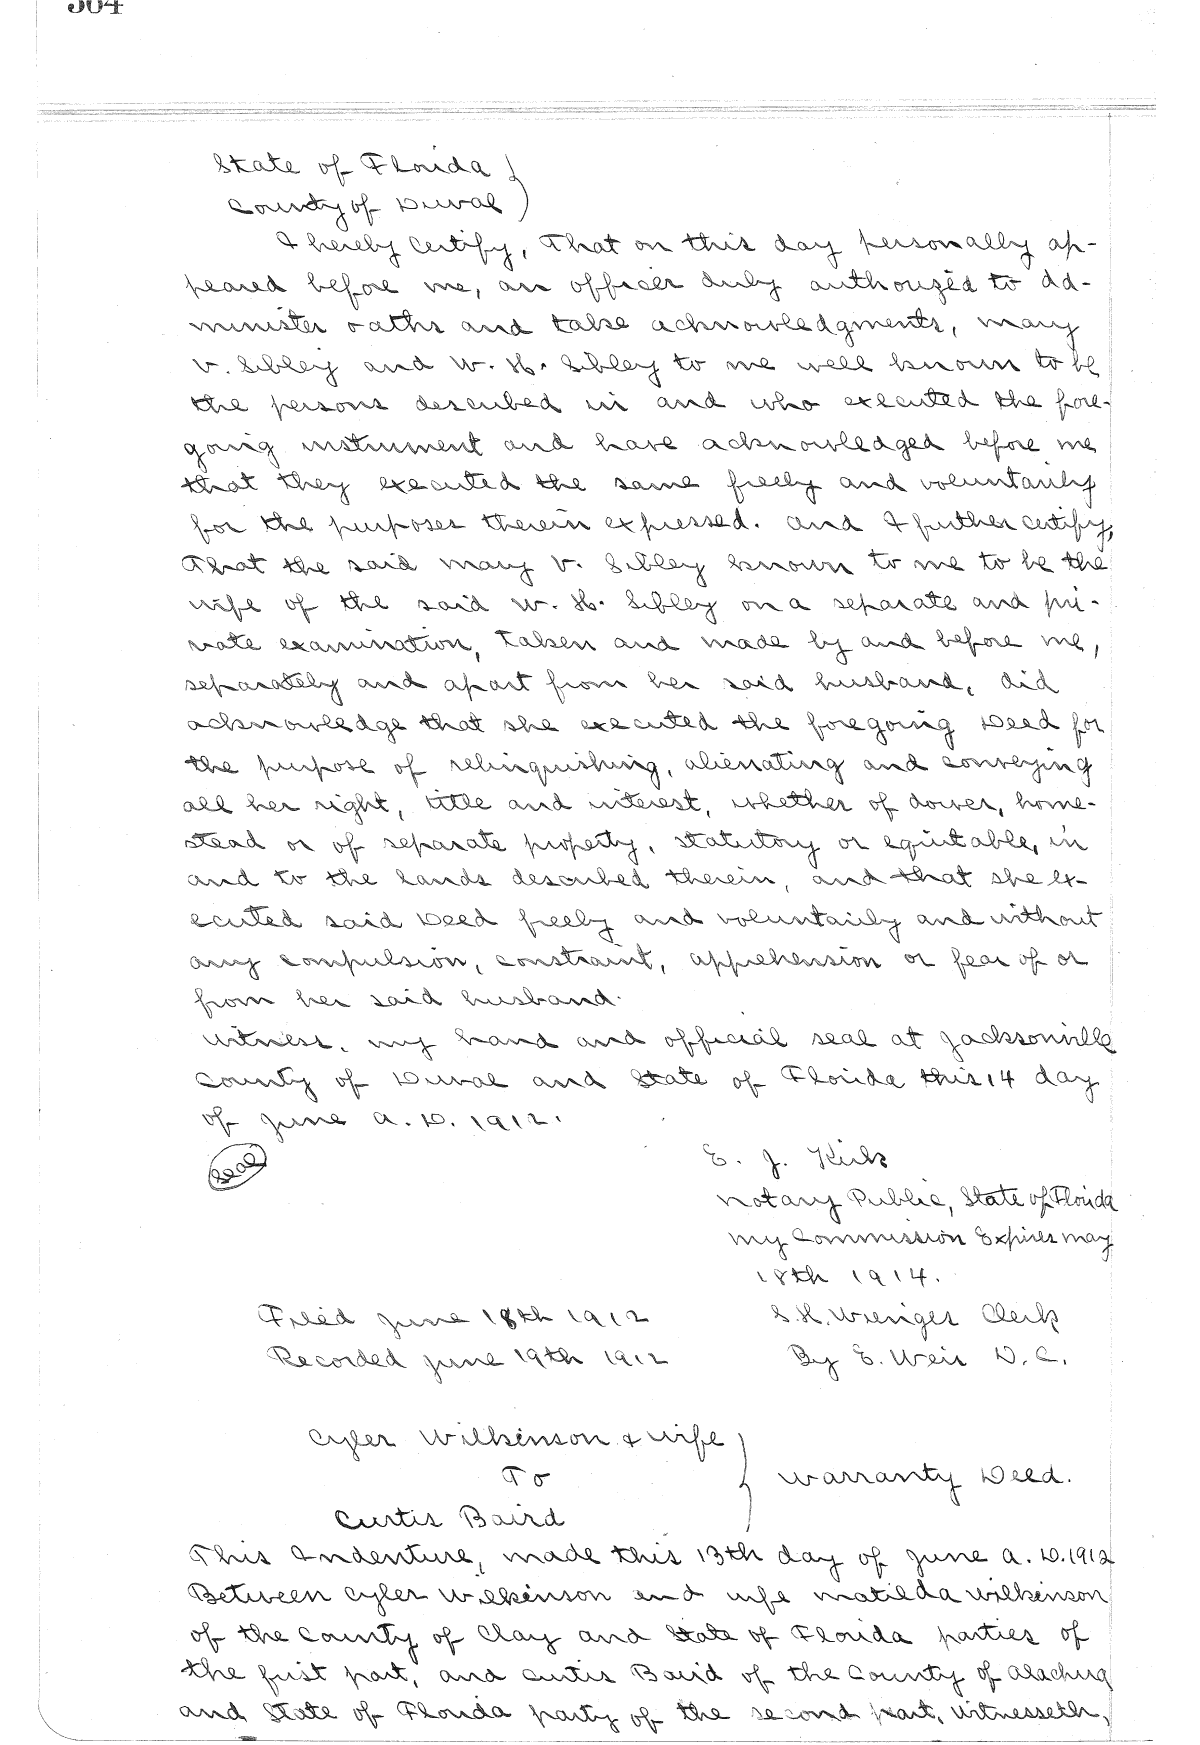 304
State of Florida
County of Duval
I hereby Certify, That on this day personally ap-
peared before me, an officer duly authorized to ad-
minister oaths and take acknowledgments, Mary
V. Sibley and W. H. Sibley to me well known to be
the persons described in and who executed the fore-
going instrument and have acknowledged before me
that they executed the same freely and voluntarily
for the purposes therein expressed. And I further certify,
That the said Mary V. Sibley known to me to be the
wife of the said W. H. Sibley on a separate and pri-
vate examination, taken and made by and before me,
separately and apart from her said husband, did
acknowledge that she executed the foregoing Deed for
the purpose of relinquishing, alienating and conveying
all her right, title and interest, whether of dower, home-
stead or of separate property, statutory or equitable, in
and to the lands described therein, and that she ex-
ecuted said Deed freely and voluntarily and without
any compulsion, constraint, apprehension or fear of or
from her said husband.
Witness, my hand and official seal at Jacksonville
County of Duval and State of Florida this 14 day
of June A. D. 1912.
Seal
E. J. Kirk
Notary Public, State of Florida
My Commission Expires May
18th 1914.
Filed June 18th 1912
S. H. Clerk
Recorded June 19th 1912
By E. Weir D. C.
Cyler Wilkinson & wife
To
Warranty Deed.
Curtis Baird
This Indenture, made this 13th day of June A. D. 1912
Between Cyler Wilkinson and wife Matilda Wilkinson
of the County of Clay and State of Florida parties of
the first part, and Curtis Baird of the County of Alachua
and State of Florida party of the second part, Witnesseth,